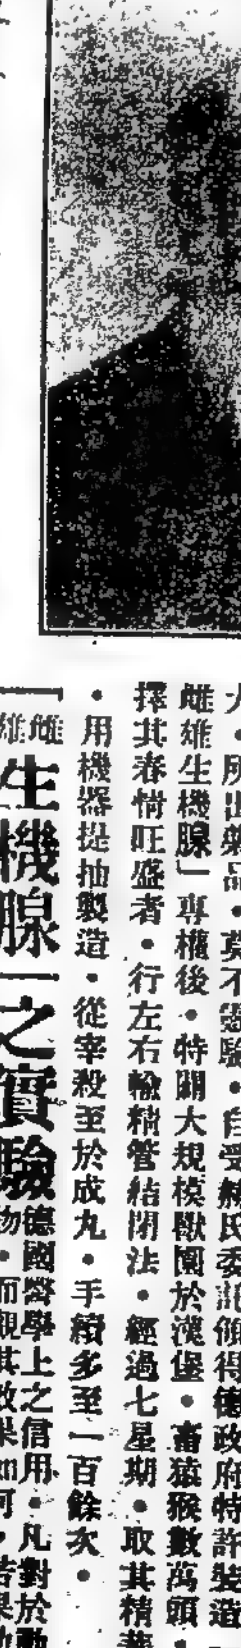 大・所出藥品・莫不靈驗・自受赫氏委託領得德政府特許裝造
雌雄生機腺」專權後・特闢大規模獸園於漢堡・畜猿猴數萬頭
擇其春情旺盛者・行左右輸精管結閉法・經過七星期・取其精華
・用機器提抽製造・從宰殺至於成丸・手續多至一百餘次・
「雌雄生機腺」之實驗
德國醫學上之信用・凡對於動
物・而觀其效果如何・若果